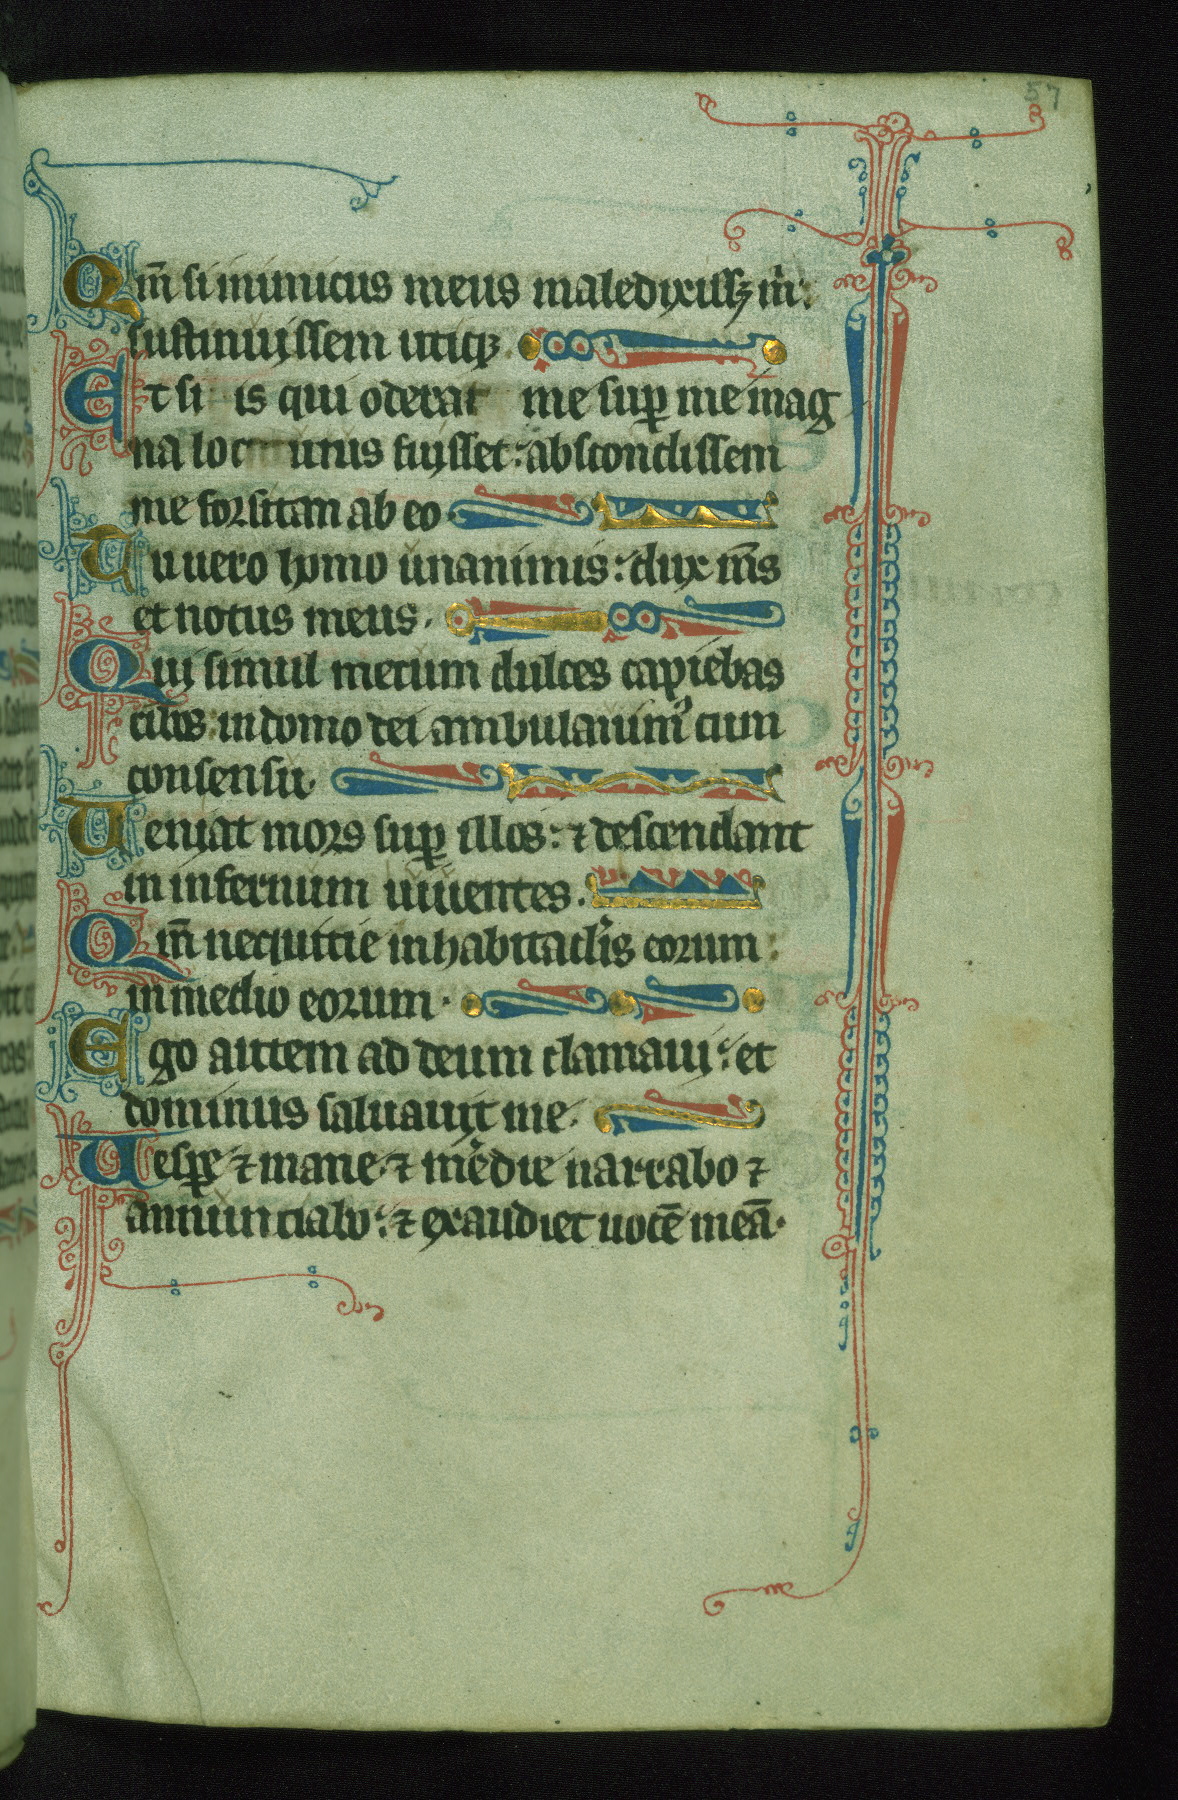 57
Qm̄ si inimicus meus maledixissꝫ m̄:
sustinuissem utiqꝫ.
Et si is qui oderat me suꝑ me mag
na locutus fuisset: abscondissem
me forsitan ab eo.
Tu uero homo unanimis: dux m̄s
et notus meus.
Qui simul mecum dulces capiebas
cibos: in domo dei ambulauimꝰ cum
consensu.
Ueniat mors suꝑ illos: ⁊ descendant
in infernum uiuentes.
Qm̄ nequitie in habitaclis eorum:
in medio eorum.
Ego autem ad deum clamaui: et
dominus saluauit me.
Uesꝑe ⁊ mane ⁊ m̄edie narrabo ⁊
annunciabo: ⁊ exaudiet uocē meā.